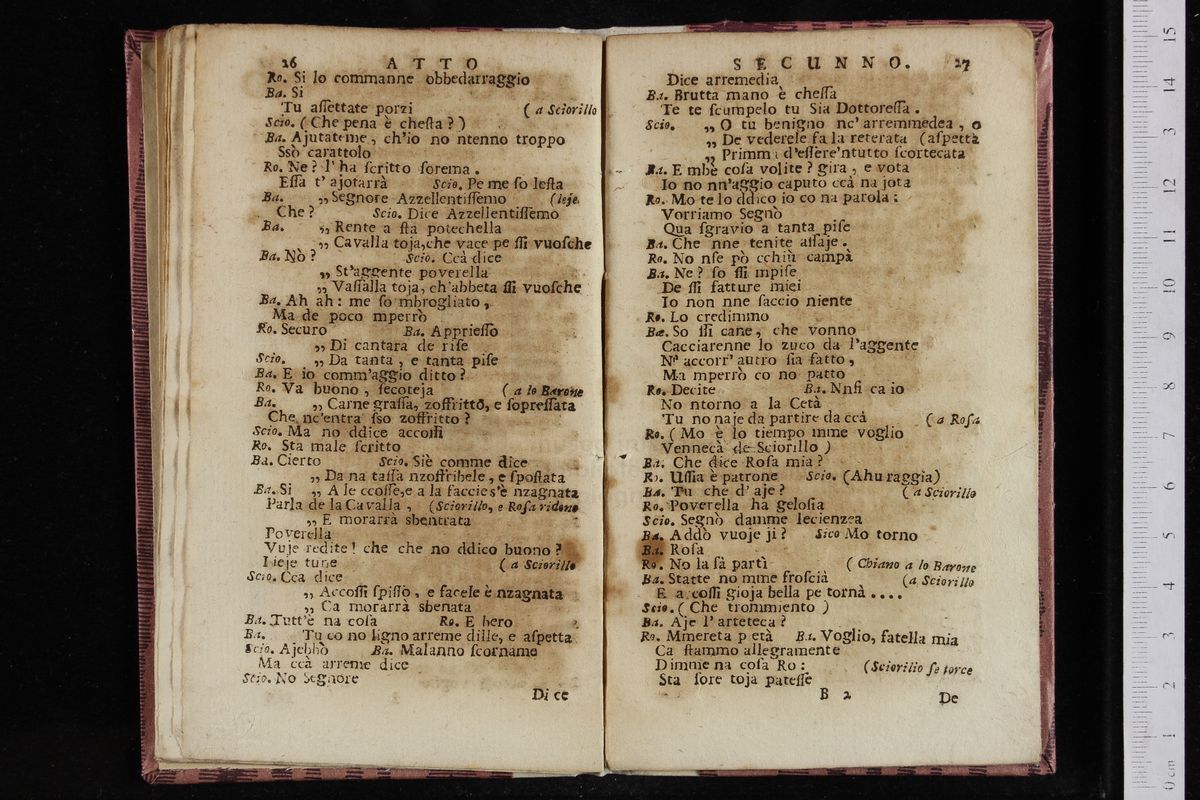 26 ATTO
Ro. Si lo commanne obbedarraggio
Ba. Si
Tu aſſettate porzi ( a Sciorillo
Scio. ( Che pena è cheſta ? )
Ba. Ajutateme , ch'io no ntenno troppo
Ssò carattolo
Ro. Ne ? l' ha ſcritto ſorema .
Eſſa t' ajotarrà Scio. Pe me ſo leſta
Ba. ,, Segnore Azzellentiſſemo (leje
Che ? Scio. Dice Azzellentiſſemo
Ba. ,, Rente a ſta potechella
,, Cavalla toja,che vace pe ſſi vuoſche
Ba. Nò ? Scio. Ccà dice
,, St'aggente poverella
,, Vaſſalla toja, ch'abbeta ſſi vuoſche
Ba. Ah ah : me ſo mbrogliato ,
Ma de poco mperrò
Ro. Securo Ba. Apprieſſo
,, Di cantara de riſe
Scio. ,, Da tanta , e tanta piſe
Ba. E io comm'aggio ditto ?
Ro. Va buono , ſecoteja ( a lo Barone
Ba. ,, Carne graſſa, zoffritto, e ſopreſſata
Che nc'entra ſso zoffritto ?
Scio. Ma no ddice accoſſi
Ro. Sta male ſcritto
Ba. Cierto Scio. Siè comme dice
,, Da na taſſa nzoffribele , e ſpoſtata
Ba. Si ,, A le ccoſſe,e a la faccie s'è nzagnata
Parla de la Cavalla , (Sciorillo, e Roſa ridono
,, E morarrà sbentrata
Poverella
Vuje redite ! che che no ddico buono ?
Lieje tune ( a Sciorillo
Scio. Cca dice
,, Accoſſi ſpiſſo , e facele è nzagnata
,, Ca morarrà sbenata
Ba. Tutt'è na coſa Ro. E bero
Ba. Tu co no ligno arreme dille, e aſpetta
Scio. Ajebbò Ba. Malanno ſcorname
Ma ccà arreme dice
Scio. No Segnore
Di ce
SECUNNO. 27
Dice arremedia
Ba. Brutta mano è cheſſa
Te te ſcumpelo tu Sia Dottoreſſa .
Scio. ,, O tu benigno nc' arremmedea , o
,, De vederele fa la reterata (aſpetta
,, Primma d'eſſere'ntutto ſcortecata
Ba. E mbè coſa volite ? gira , e vota
Io no nn'aggio caputo ccà na jota
Ro. Mo te lo ddico io co na parola :
Vorriamo Segnò
Qua ſgravio a tanta piſe
Ba. Che nne tenite aſſaje .
Ro. No nſe pò cchiù campà
Ba. Ne ? ſo ſſi mpiſe
De ſſi fatture miei
Io non nne faccio niente
Ro. Lo credimmo
Ba. So ſſi cane , che vonno
Cacciarenne lo zuco da l'aggente
N' accorr' autro ſia fatto ,
Ma mperrò co no patto
Ro. Decite Ba. Nnfi ca io
No ntorno a la Cetà
Tu no naje da partire da ccà ( a Roſa
Ro. ( Mo è lo tiempo mme voglio
Vennecà de Sciorillo )
Ba. Che dice Roſa mia ?
Ro. Uſſia è patrone Scio. (Ahu raggia)
Ba. Tu che d' aje ? ( a Sciorillo
Ro. Poverella ha geloſia
Scio. Segnò damme lecienzea
Ba. Addò vuoje ji ? Sico Mo torno
Ba. Roſa
Ro. No la fà partì ( Chiano a lo Barone
Ba. Statte no mme froſcià (a Sciorillo
E accoſſi gioja bella pe tornà ....
Scio. ( Che trommiento )
Ba. Aje l' arteteca ?
Ro. Mmereta p età Ba. Voglio, fatella mia
Ca ſtammo allegramente
Dimme na coſa Ro : (Sciorillo ſe torce
Sta ſore toja pateſſe
B 2 De